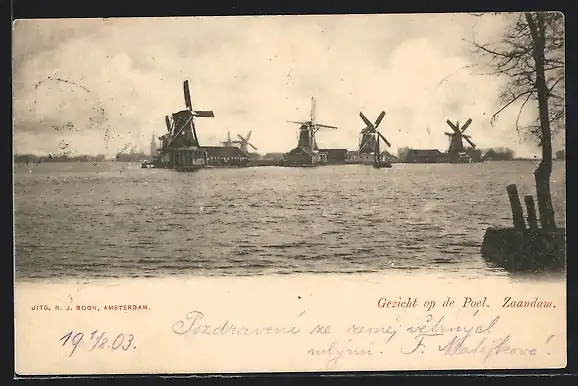 UITG. N. J. BOON, AMSTERDAM.
Gezicht op de Poel. Zaandam.
19 1/2 03.
Pozdravení ze země větrných
mlýnů. F. Matějková!